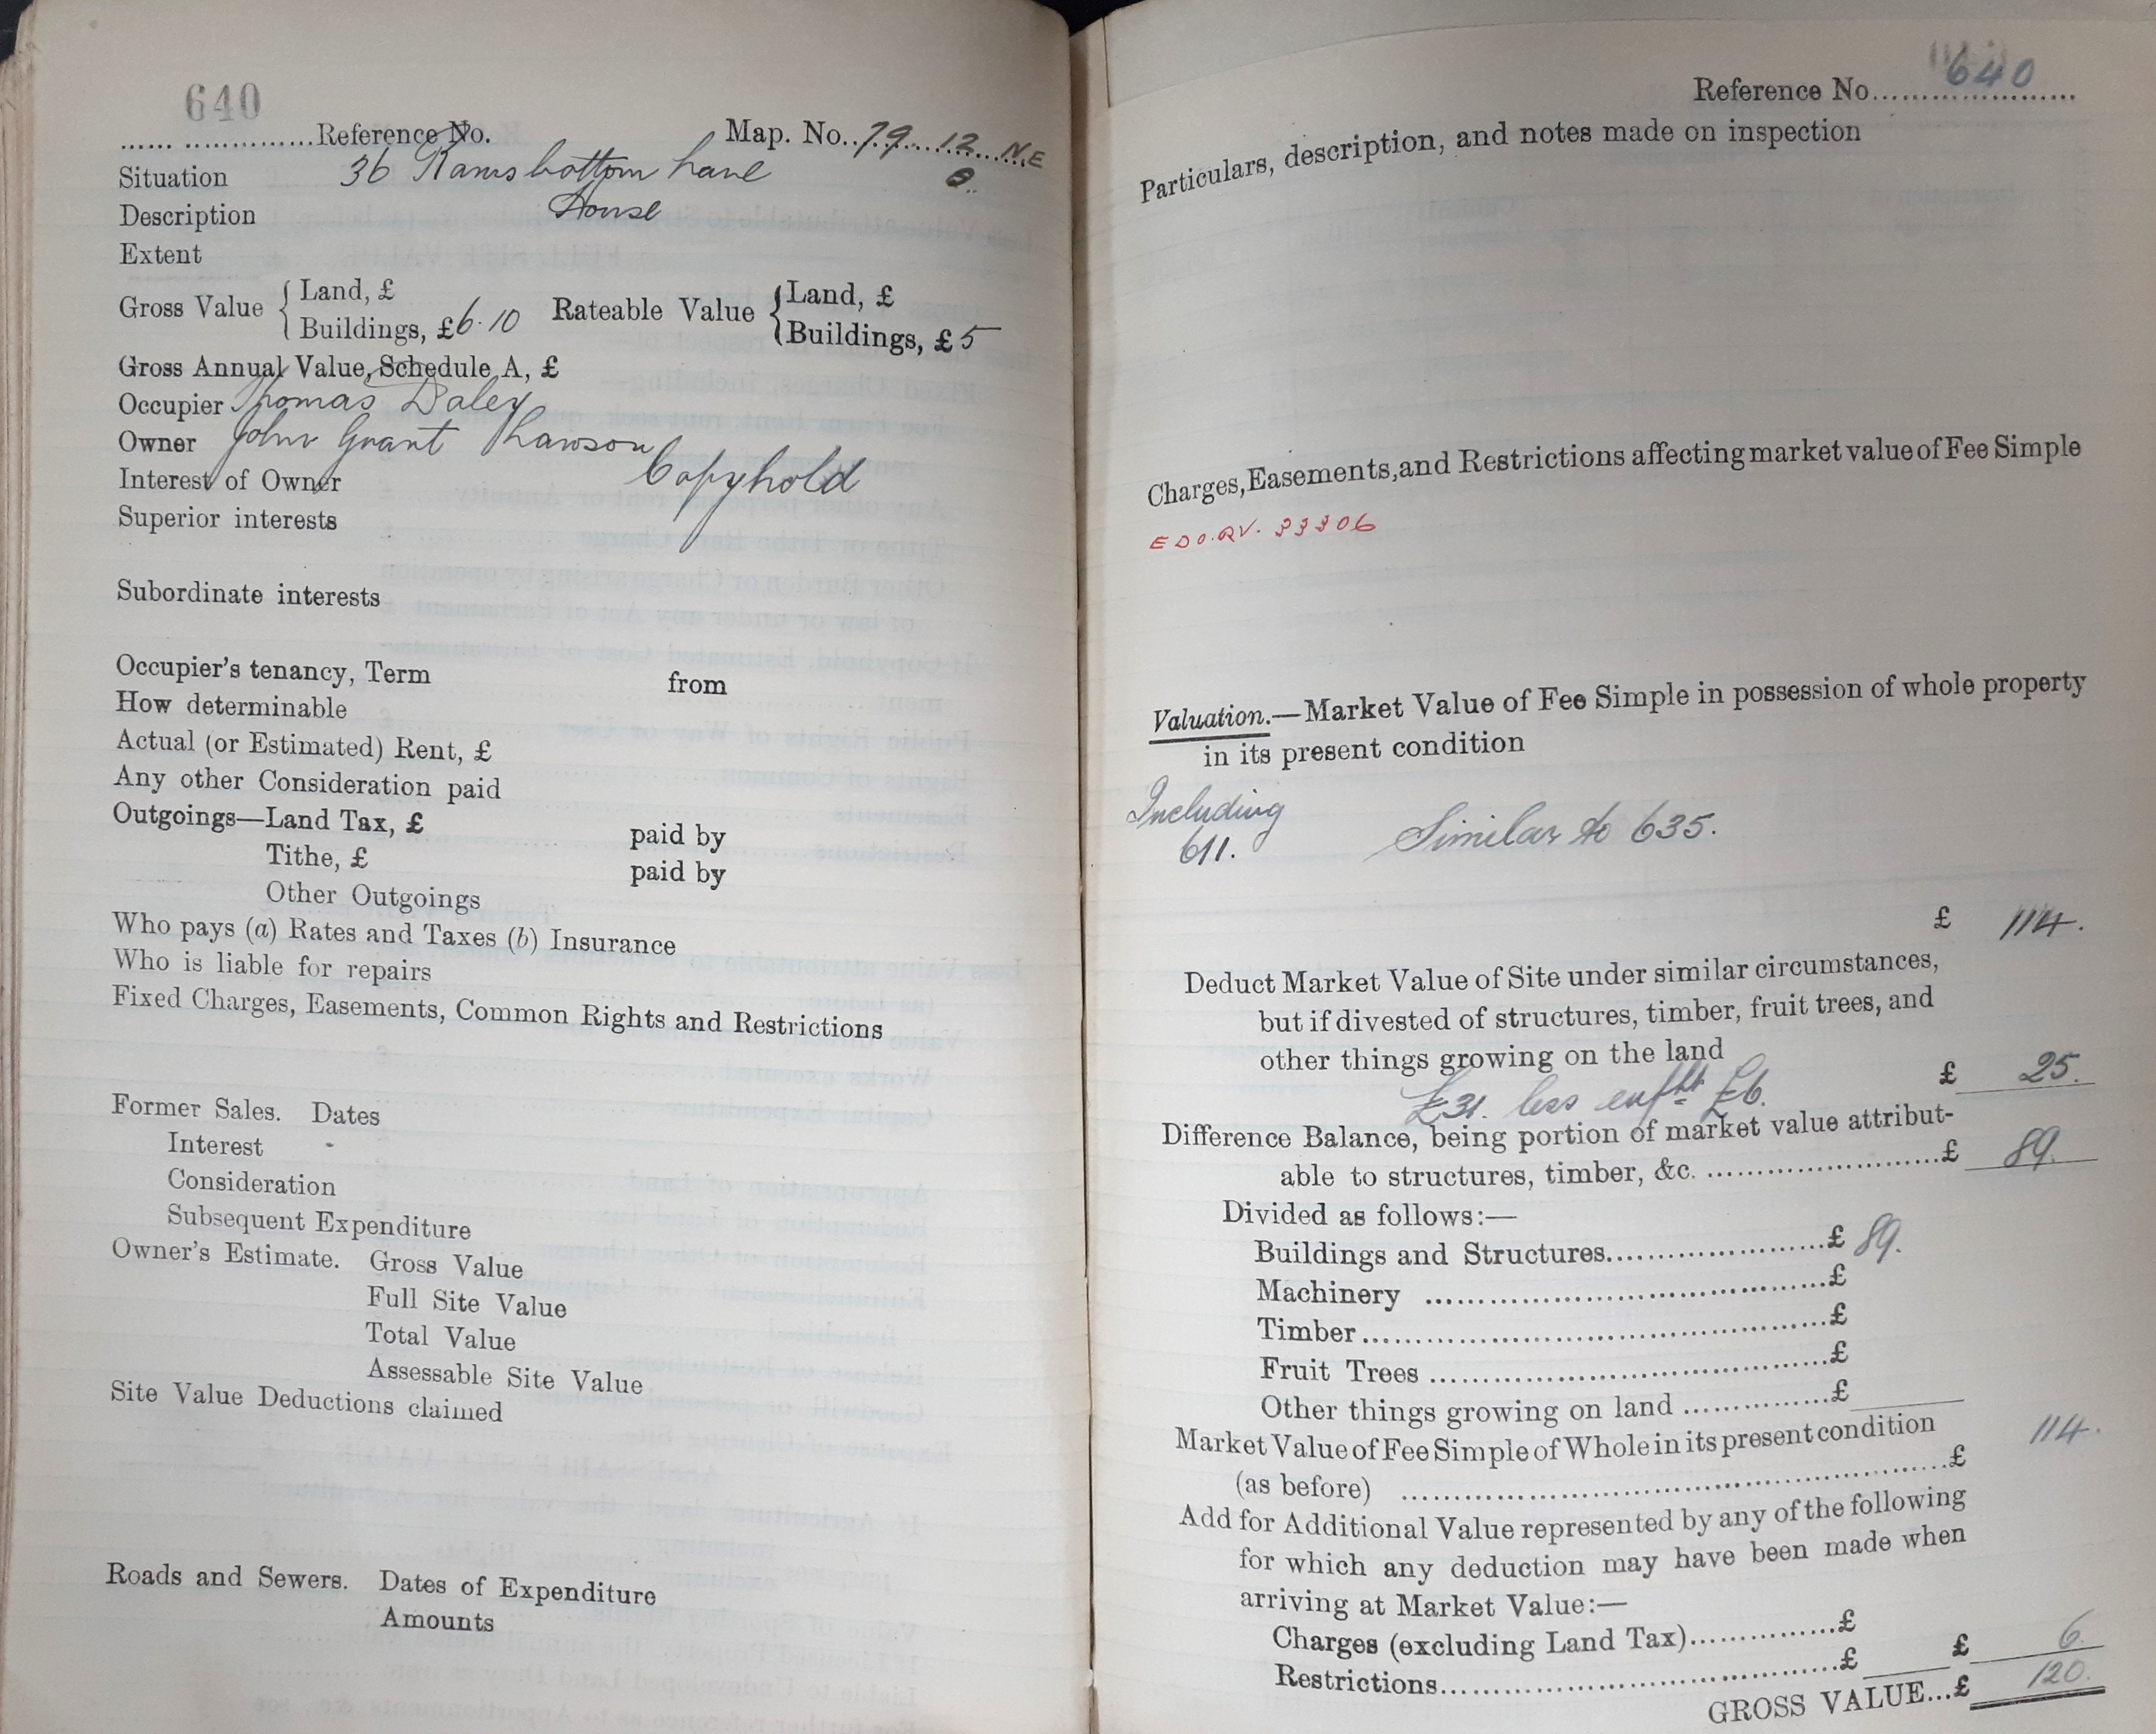 640
.................Reference No. Map. No. 79 12 N.E
Situation 36 Ramsbottom Lane
Description House
Extent
Gross Value { Land, £ Rateable Value { Land, £
Buildings, £6.10 Buildings, £5
Gross Annual Value, Schedule A, £
Occupier Thomas Daley
Owner John Grant Lawson
Interest of Owner Copyhold
Superior interests
Subordinate interests
Occupier's tenancy, Term from
How determinable
Actual (or Estimated) Rent, £
Any other Consideration paid
Outgoings—Land Tax, £ paid by
Tithe, £ paid by
Other Outgoings
Who pays (a) Rates and Taxes (b) Insurance
Who is liable for repairs
Fixed Charges, Easements, Common Rights and Restrictions
Former Sales. Dates
Interest
Consideration
Subsequent Expenditure
Owner's Estimate. Gross Value
Full Site Value
Total Value
Assessable Site Value
Site Value Deductions claimed
Roads and Sewers. Dates of Expenditure
Amounts
Reference No. 640
Particulars, description, and notes made on inspection
Charges, Easements, and Restrictions affecting market value of Fee Simple
33306
Valuation.—Market Value of Fee Simple in possession of whole property
in its present condition
Including
611. Similar to 635.
£ 114.
Deduct Market Value of Site under similar circumstances,
but if divested of structures, timber, fruit trees, and
other things growing on the land
£31. less enfht £6. £ 25.
Difference Balance, being portion of market value attribut-
able to structures, timber, &c. ..............................£ 89.
Divided as follows:—
Buildings and Structures.........................£ 89.
Machinery .............................................£
Timber....................................................£
Fruit Trees .............................................£
Other things growing on land .................£
Market Value of Fee Simple of Whole in its present condition
(as before) ..........................................................£ 114.
Add for Additional Value represented by any of the following
for which any deduction may have been made when
arriving at Market Value:—
Charges (excluding Land Tax)................£
Restrictions.............................................£ £ 6.
GROSS VALUE...£ 120.